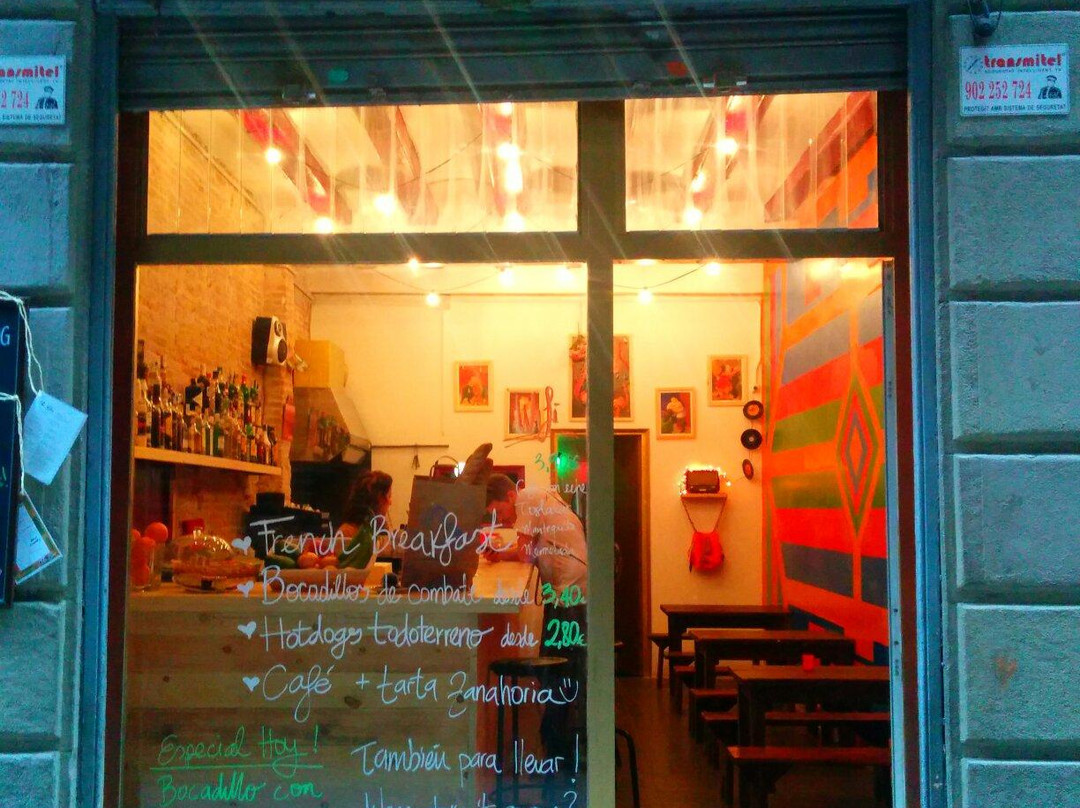 transmitel
902 252 724
PROTEGIT AMB SISTEMA DE SEGURETAT
ansmitel
2 724
SISTEMA DE SEGURETAT
G
French Breakfast
Mantequilla
Mermelada
Bocadillos de combate desde 3,40€
Hotdogs todoterreno desde 2,80€
Café + tarta Zanahoria
Especial Hoy!
Bocadillo con
También para llevar!